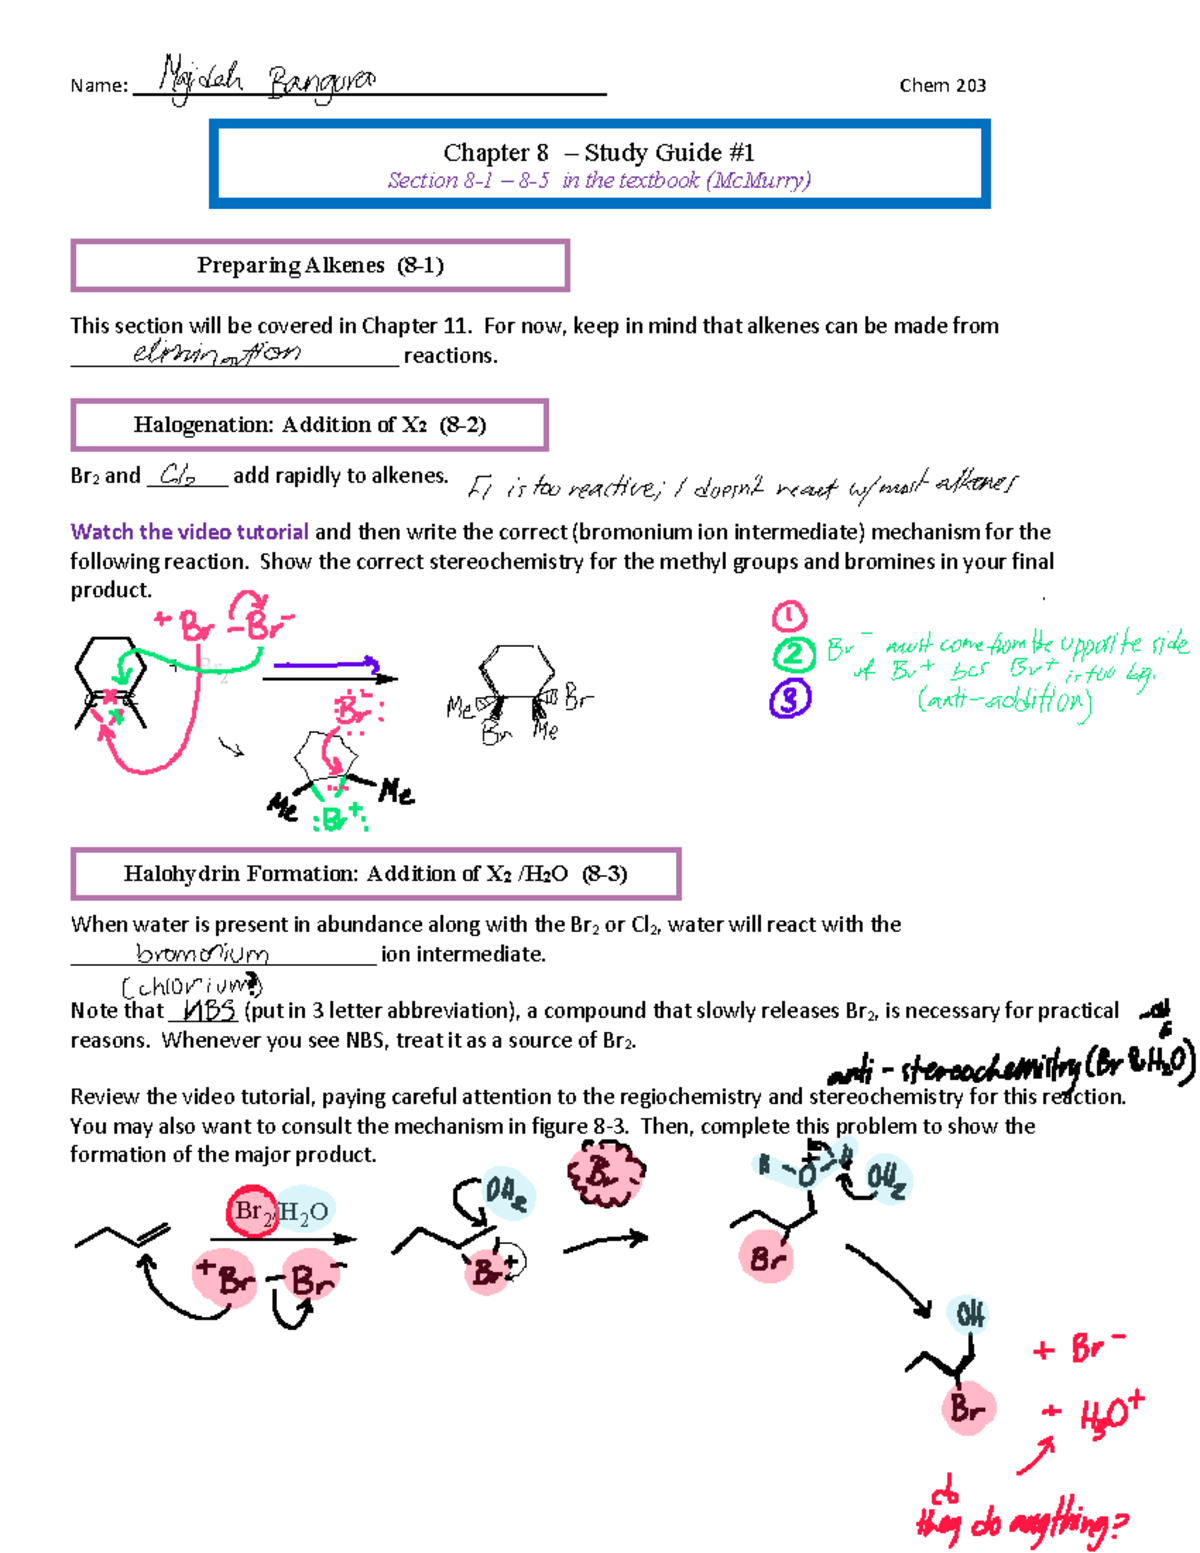 Name: Majdah Bangura Chem 203
Chapter 8 – Study Guide #1
Section 8-1 – 8-5 in the textbook (McMurry)
Preparing Alkenes (8-1)
This section will be covered in Chapter 11. For now, keep in mind that alkenes can be made from
elimination reactions.
Halogenation: Addition of X₂ (8-2)
Br₂ and Cl₂ add rapidly to alkenes. F is too reactive; I doesn't react w/most alkenes
Watch the video tutorial and then write the correct (bromonium ion intermediate) mechanism for the
following reaction. Show the correct stereochemistry for the methyl groups and bromines in your final
product.
+Br –Br⁻
+ Br₂
1
2 Br⁻ must come from the opposite side
of Br⁺ bcs Br⁺ is too big.
3 (anti-addition)
Me Br
Br Me
:Br:⁻
Me Me
:Br⁺:
Halohydrin Formation: Addition of X₂ /H₂O (8-3)
When water is present in abundance along with the Br₂ or Cl₂, water will react with the
bromonium ion intermediate.
(chlorium?)
Note that NBS (put in 3 letter abbreviation), a compound that slowly releases Br₂, is necessary for practical
reasons. Whenever you see NBS, treat it as a source of Br₂.
anti-stereochemistry (Br & H₂O)
Review the video tutorial, paying careful attention to the regiochemistry and stereochemistry for this reaction.
You may also want to consult the mechanism in figure 8-3. Then, complete this problem to show the
formation of the major product.
Br₂/H₂O
+Br –Br⁻
OH₂
Br+
Br⁻
H O+ H OH₂
Br
OH
Br
+ Br⁻
+ H₃O⁺
do
they do anything?